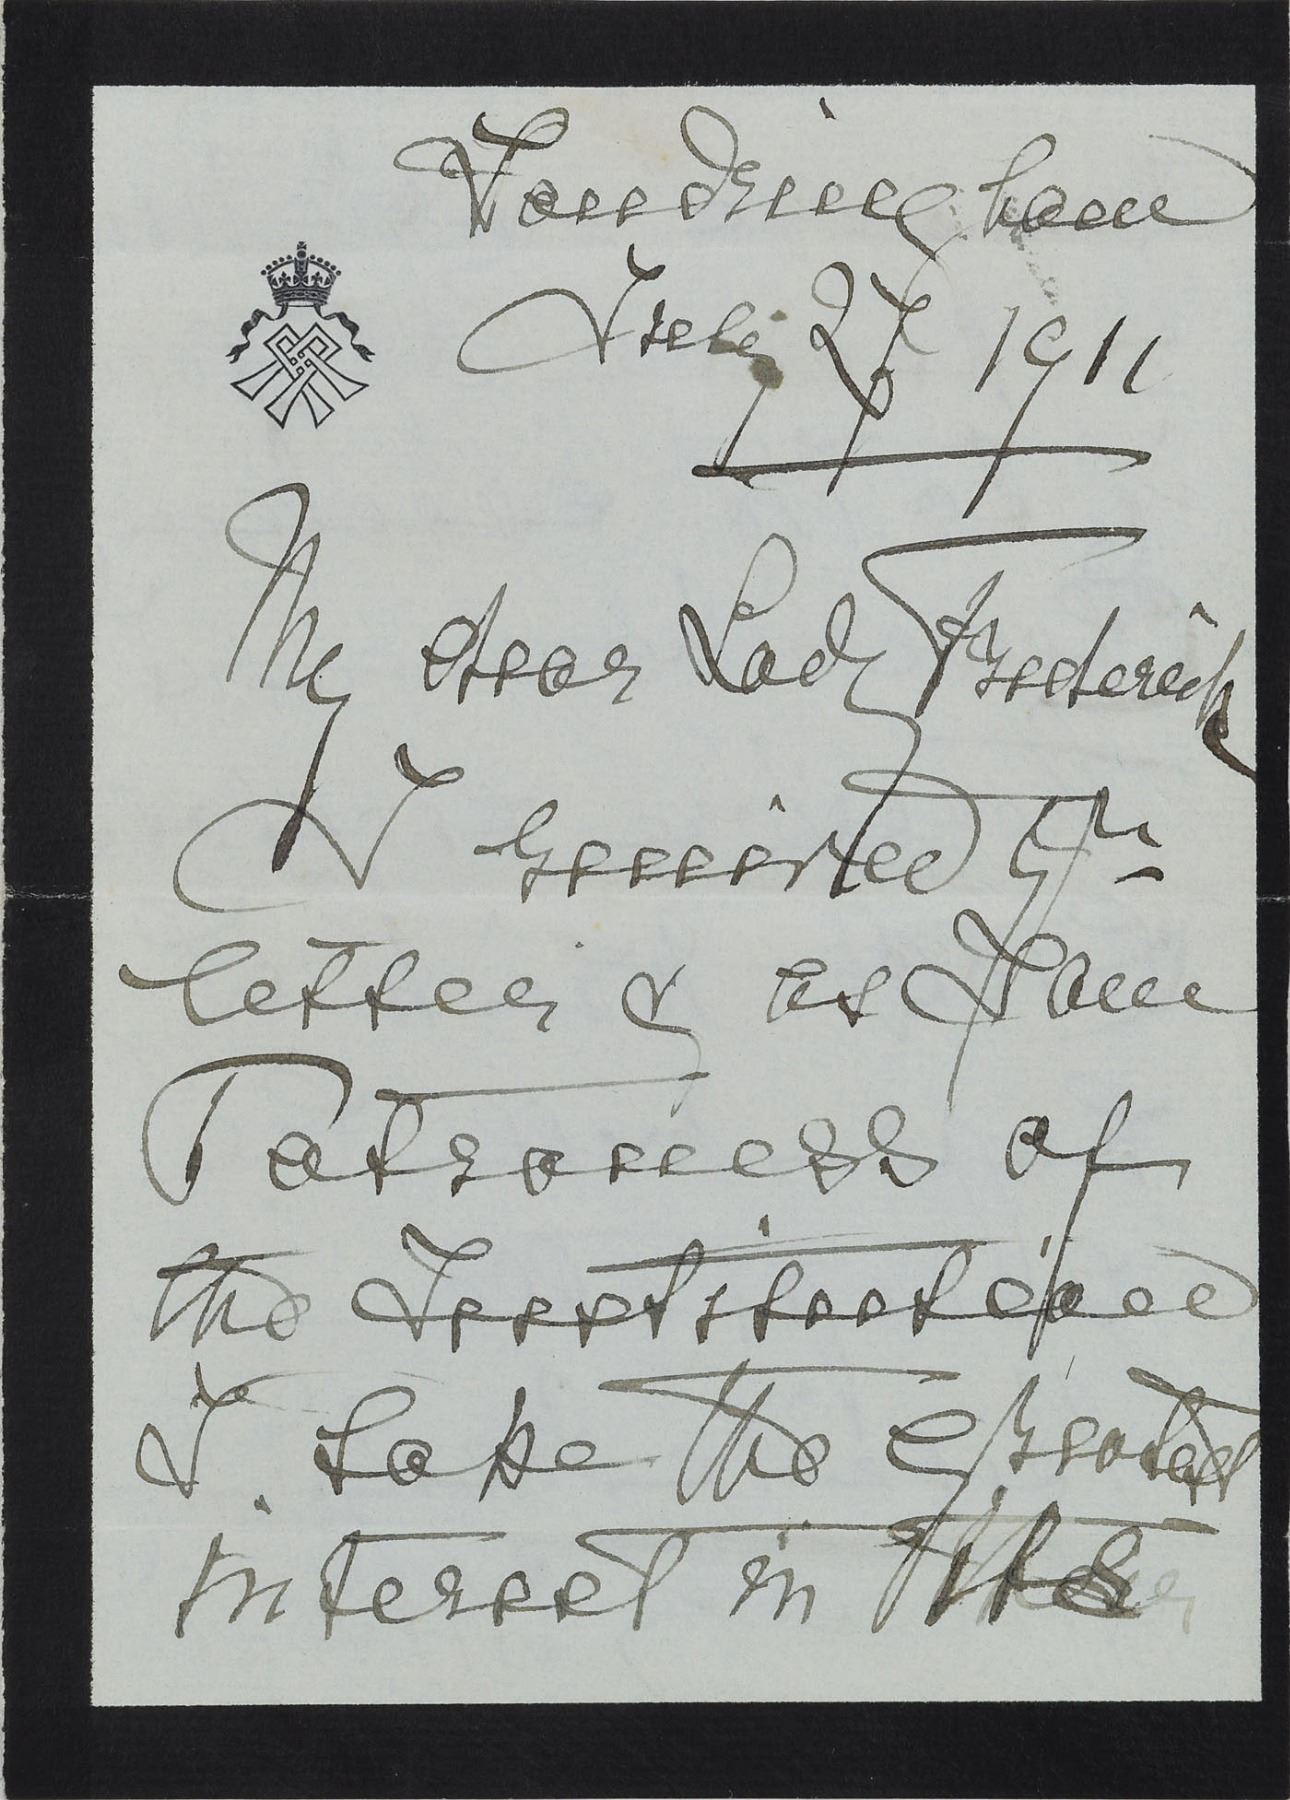 Sandringham
July 27 1911
My dear Lady Frederick
I received yr
letter & as I am
Patroness of
the Institution
I take the greatest
interest in